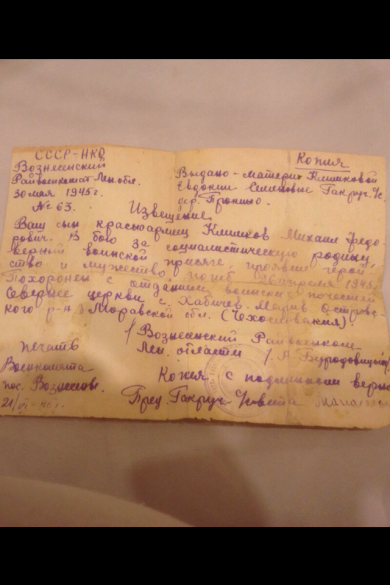 СССР-НКО
Вознесенский
Райвоенкомат Лен. обл.
30 мая 1945 г.
№ 63.
Копия
Выдано - матери Климковой
Евдокии Семеновне Гакруч. с/с.
дер.
Извещение
Ваш сын красноармеец Климков Михаил Федо
рович. В бою за социалистическую родину,
верный воинской присяге проявив герой
ство и мужество, погиб апреля 1945г.
Похоронен с отданием воинских почестей
Севернее церкви с. Остравс
кого р-на Моравской обл. (Чехословакия)
/ Вознесенский Райвоенком
Лен. области
печать
Военкомата
пос. Вознесенье.
Копия с подлинным верна
21/
Пред. Гакруч. с/совета